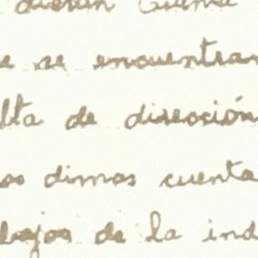 dieran Cuenta
e se encuentran
lta de direción
os dimos cuenta
bajos de la ind